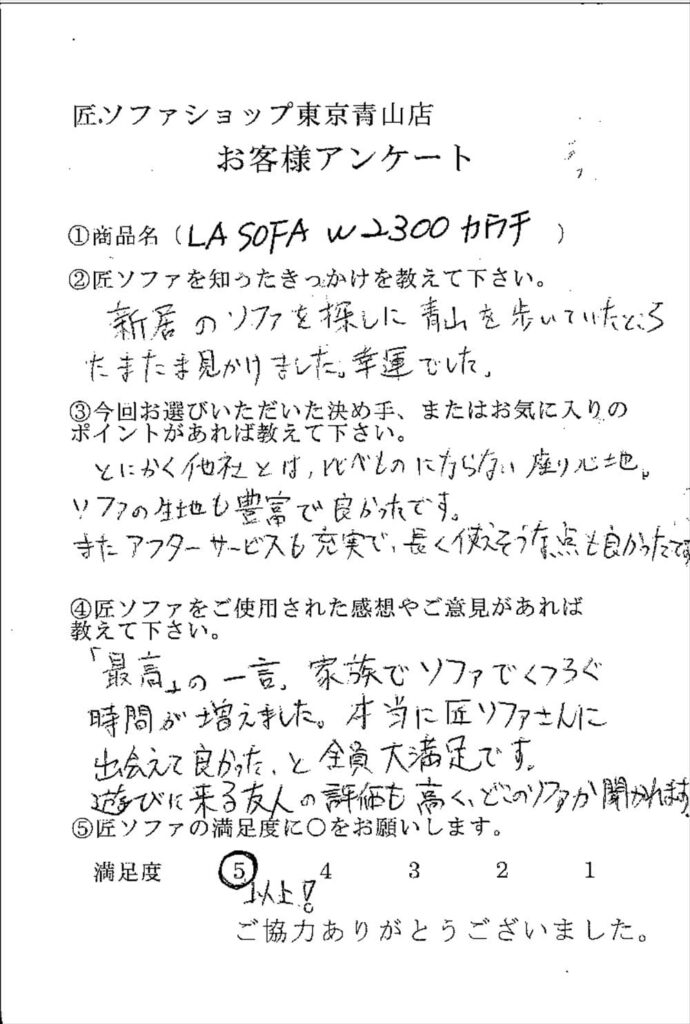 匠ソファショップ東京青山店
お客様アンケート
①商品名（LA SOFA W2300 カウチ）
②匠ソファを知ったきっかけを教えて下さい。
新居のソファを探しに青山を歩いていたところ
たまたま見かけました。幸運でした。
③今回お選びいただいた決め手、またはお気に入りの
ポイントがあれば教えて下さい。
とにかく他社とは、比べものにならない座り心地。
ソファの生地も豊富で良かったです。
またアフターサービスも充実で、長く使えそうな点も良かったです
④匠ソファをご使用された感想やご意見があれば
教えて下さい。
「最高」の一言。家族でソファでくつろぐ
時間が増えました。本当に匠ソファさんに
出会えて良かった、と全員大満足です。
遊びに来る友人の評価も高く、どこのソファか聞かれます。
⑤匠ソファの満足度に○をお願いします。
満足度 5 4 3 2 1
以上！
ご協力ありがとうございました。